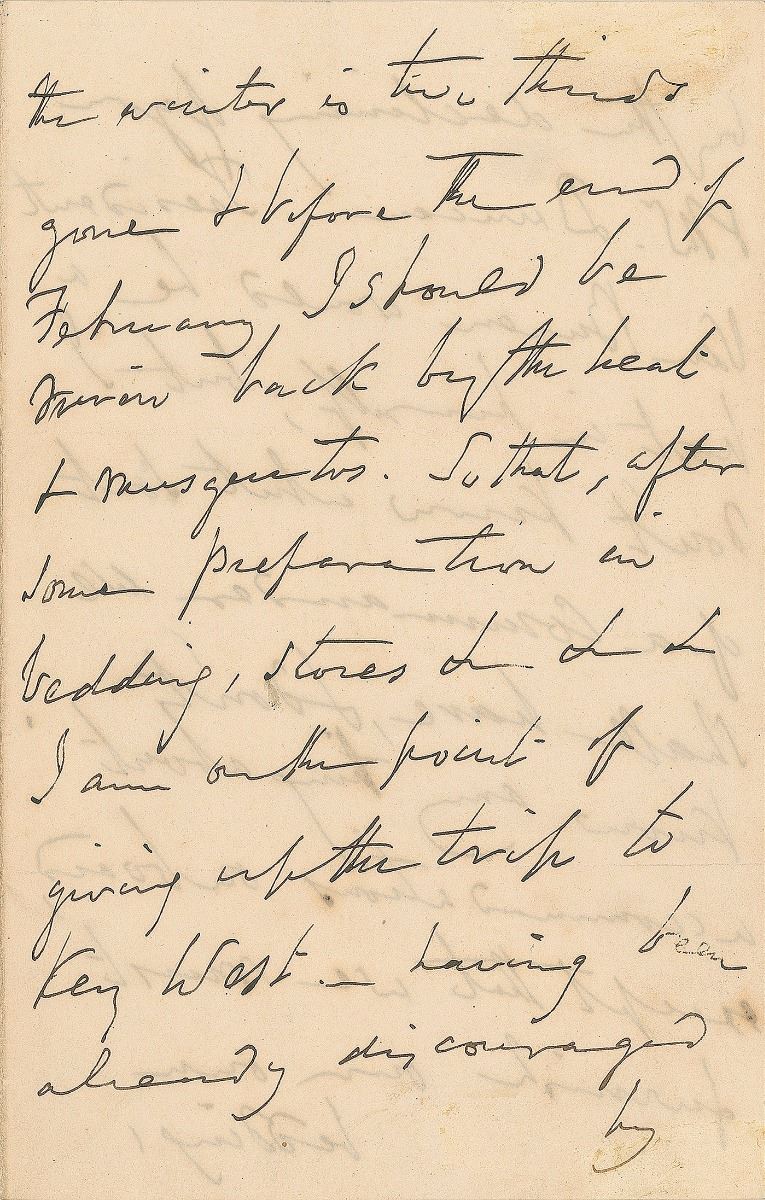 the winter is two thirds
gone & before the end of
February, I should be
driven back by the heat
& musquetos. So that, after
some preparation in
bedding, stores &c &c &c
I am on the point of
giving up the trip to
Key West. – having been
already discouraged
by